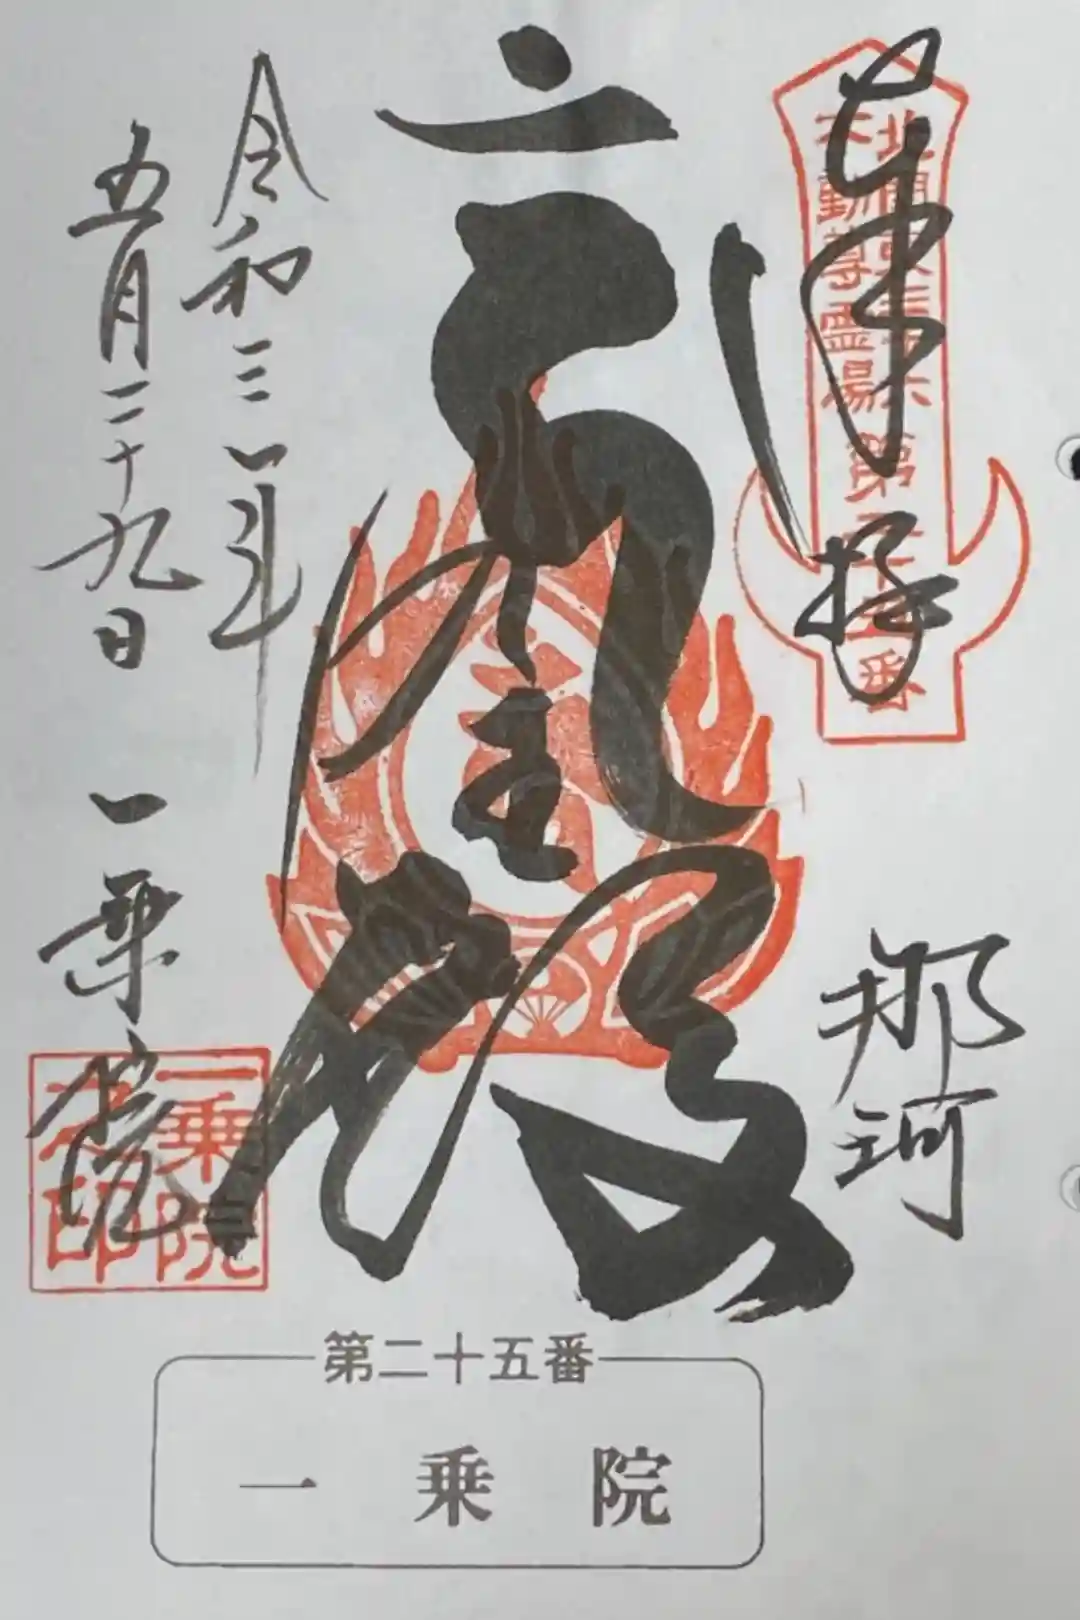 奉拝
北関東三十六
不動尊霊場
第二十五番
那珂
令和三年
五月二十九日
一乗院
一乗院
之印
第二十五番
一乗院